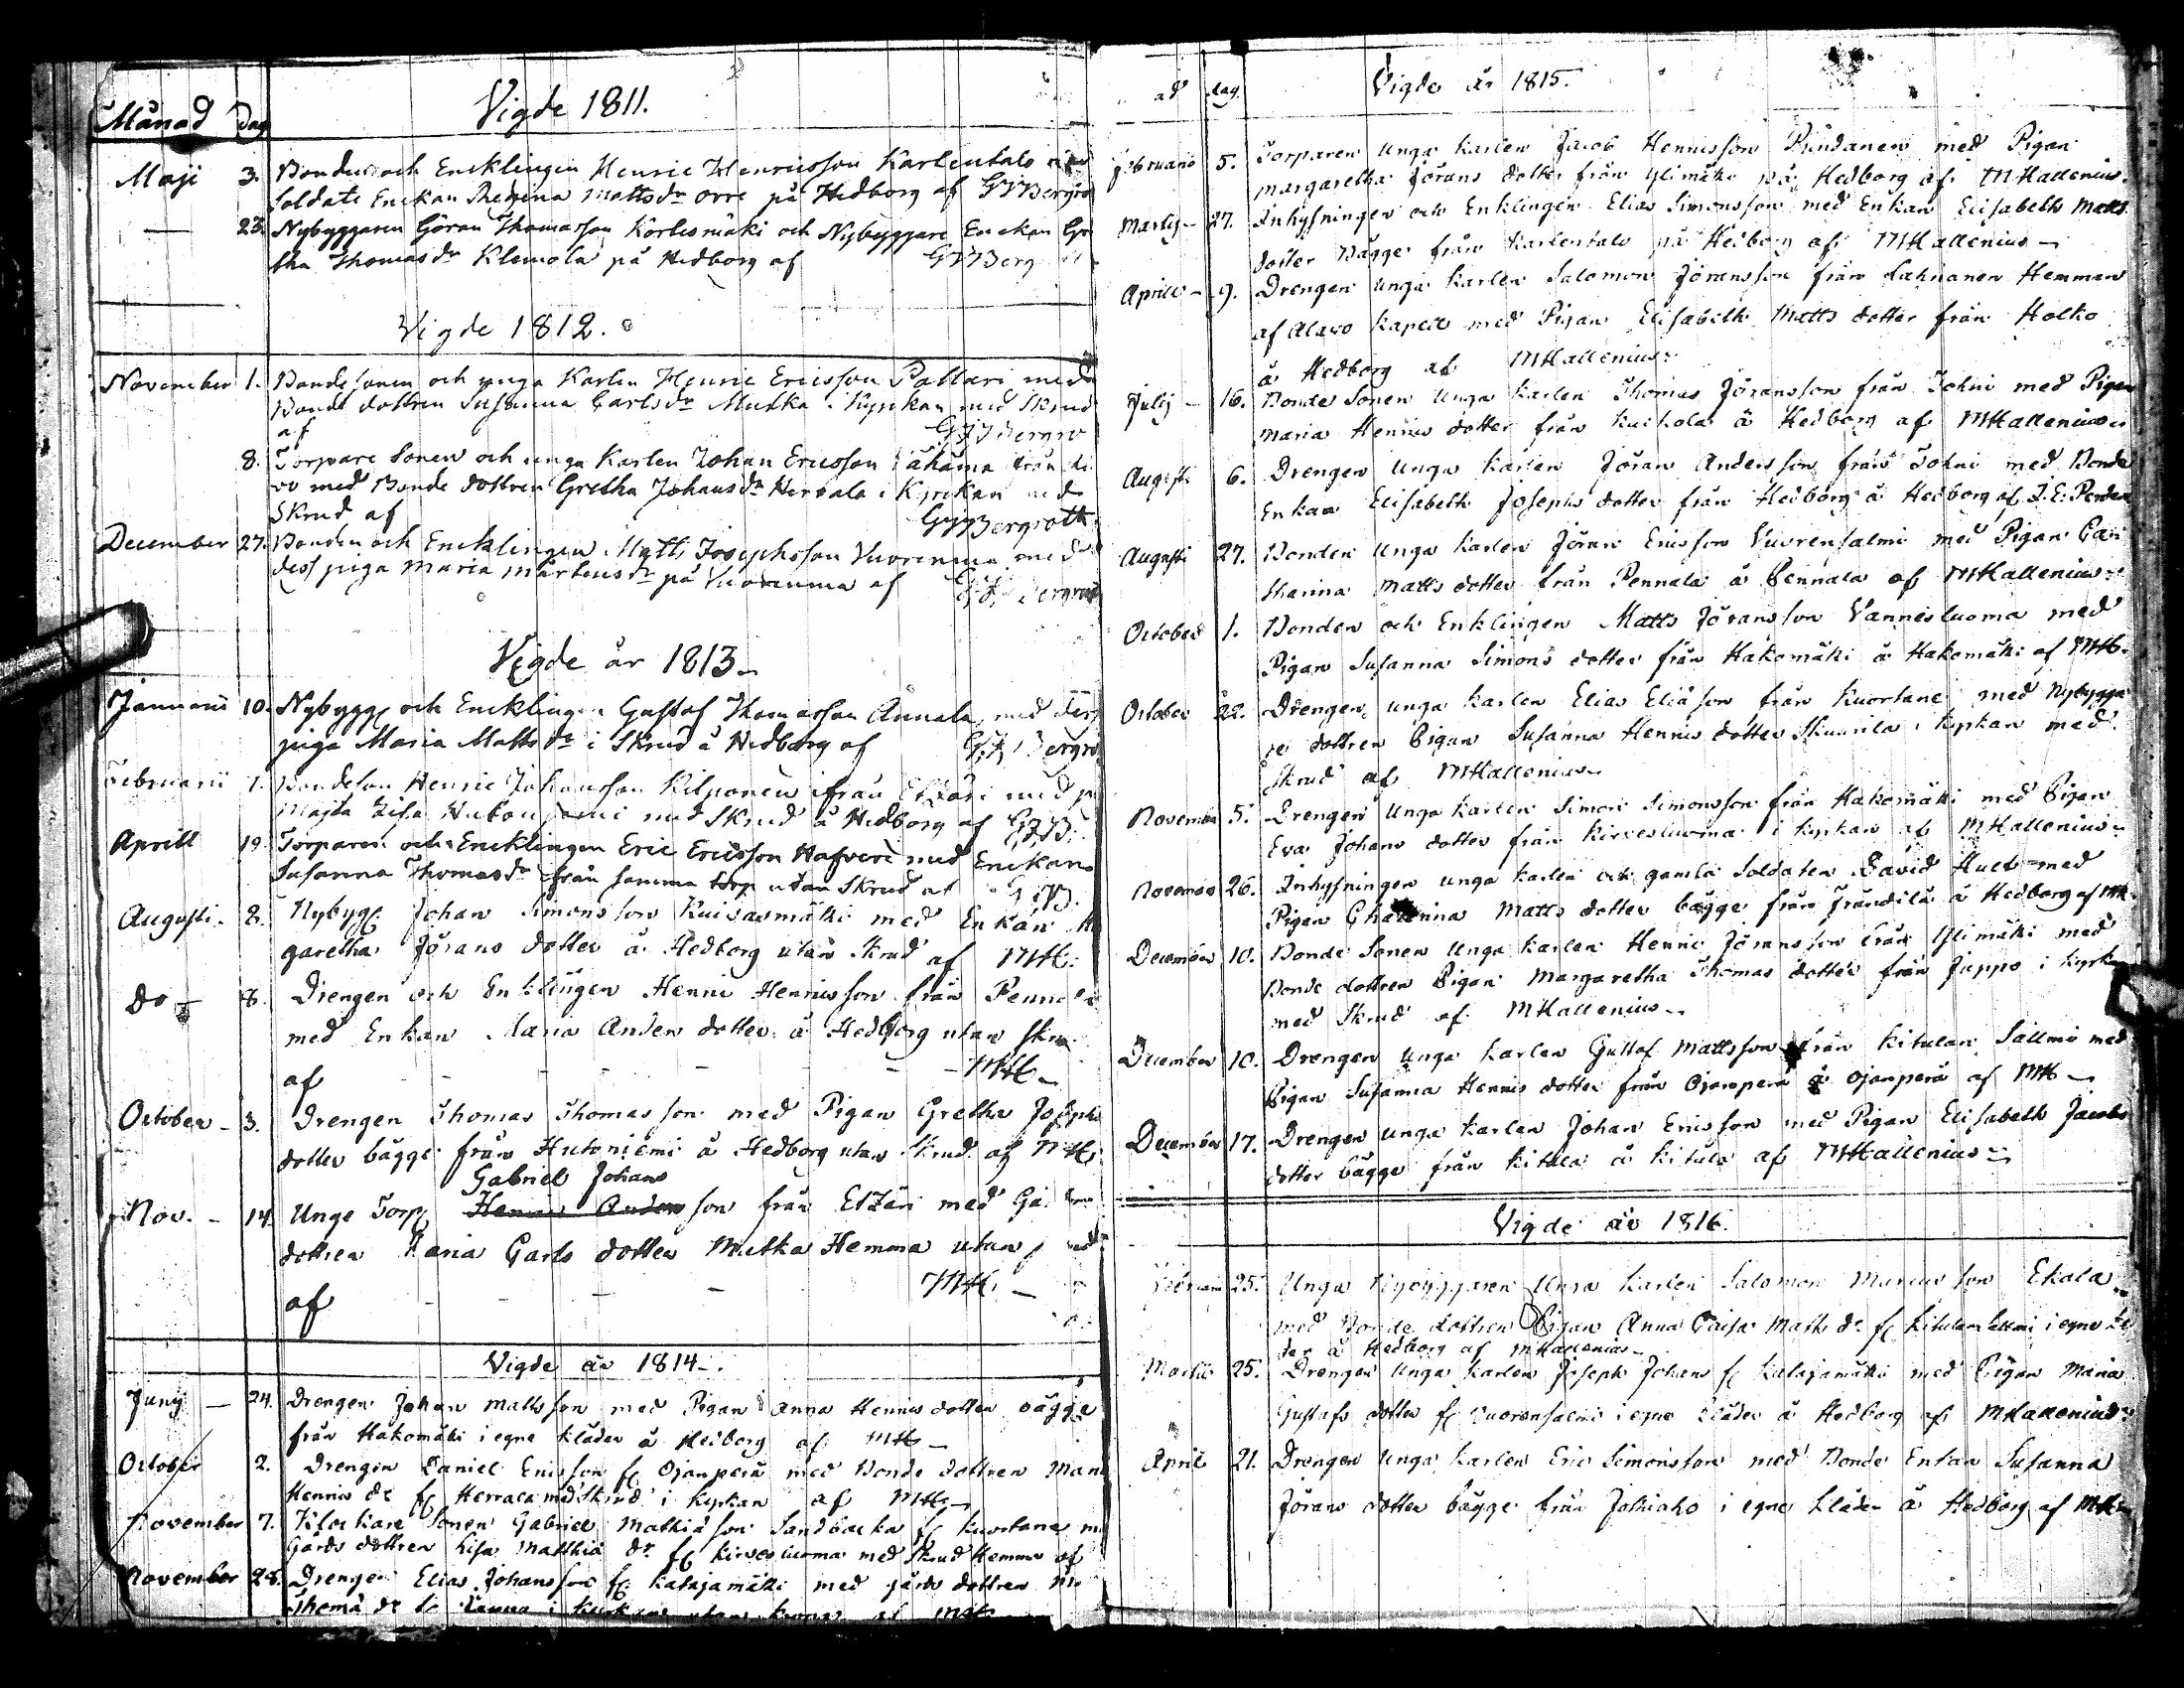 Månad Dag
Vigde 1811.
Maji 3. Bonden och Encklingen Henric Henricsson Karlentalo med
Soldats Enckan Regina Mattsdr Orre på Hedborg af GJJBergro
— 23. Nybyggaren Göran Thomasson Körtesmäki och Nybyggare Enckan Gre
tha Thomasdr Klemola på Hedborg af GJJBerg
Vigde 1812.
November 1. Bondesonen och unga Karlen Henric Ericsson Pallari med
Bonde dottren Susanna Carlsdr Mutka i Kyrkan med Skrud
af GJJBergro
8. Torpare Sonen och unga Karlen Johan Ericsson från
vo med Bonde dottren Gretha Johansdr Herrala i Kyrckan med
Skrud af GJJBergroth
December 27. Bonden och Encklingen Matts Josephsson Vuorenma med
dess piga Maria Mårtensdr på Vuorenma af GJJBergrot
Vigde år 1813.
Januarii 10. Nybygg och Encklingen Gustaf Thomasson Annala med
piga Maria Mattsdr i Skrud å Hedborg af GJJBergro
Februarii 7. Bondeson Henric Johansson Kilponen ifrån Etzäri med
Majta Lisa Hutoniemi med Skrud å Hedborg af GJJB.
Aprill 19. Torparen och Encklingen Eric Ericsson Hafveri med Enckan
Susanna Thomasdr från samma torp utan Skrud af GJJB.
Augusti. 8. Nybygg. Johan Simonsson Kuivasmäki med Enkan Ma
garetha Jörans dotter å Hedborg utan Skrud af MH.
Do — 8. Drengen och Enklingen Henric Henricsson från Pennala
med Enkan Maria Anders dotter å Hedborg utan Skru
af - - - - MH—
October - 3. Drengen Thomas Thomasson med Pigan Gretha Josephs
dotter bägge från Hutoniemi å Hedborg utan Skrud af MH.
Gabriel Johans
Nov. - 14. Unge Torp Henric Andersson från Etzäri med
dottren Maria Carls dotter Mutka Hemma utan
af - - - - MH. —
Vigde år 1814.
Juny — 24. Drengen Johan Mattsson med Pigan Anna Henrics dotter bägge
från Hakomäki i egne kläder å Hedborg af MH—
October 2. Drengen Daniel Ericsson fr Ojanperä med Bonde dottren Maria
Henrics dr fr Herrala med Skrud i kyrkan af MH—
November 7. Klockare Sonen Gabriel Mathiæson Sandbacka fr Kuortane m
Gårds dottren Lisa Matthiæ dr fr Kirvesluoma med Skrud Hemma af
November 28. Drengen Elias Johansson fr Katajamäki med gårds dottren
Thomæ dr fr i Kyrkan utan krona af MH
ad dag.
Vigde år 1815.
Februarii 5. Torparen unga karlen Jacob Henricsson Rundanen med Pigan
Margaretha Jörans dotter från Ylimäki på Hedborg af MHallenius.
Martij — 27. Inhysningen och Enklingen Elias Simonsson med Enkan Elisabeth Matts
dotter bägge från Karlentalo på Hedborg af MHallenius —
Aprill — 9. Drengen unga karlen Salomon Jöransson från Lahnanen Hemman
af Alavo kapell med Pigan Elisabeth Matts dotter från Holko
å Hedborg af MHallenius
Julij — 16. Bonde Sonen unga karlen Thomas Jöransson från Tohni med Pigan
Maria Henrics dotter från Kuihola å Hedborg af MHallenius
Augusti 6. Drengen unga karlen Jöran Andersson från Tohni med Bonde
Enkan Elisabeth Josephs dotter från Hedborg å Hedborg af J. E.
Augusti 27. Bonden unga karlen Jöran Ericsson Vuorensalmi med Pigan Ca
tharina Matts dotter från Pennala å Pennala af MHallenius
October 1. Bonden och Enklingen Matts Jöransson Vannesluoma med
Pigan Susanna Simons dotter från Hakomäki å Hakomäki af MH.
October 22. Drengen unga karlen Elias Eliæson från Kuortane med Nybygga
re dottren Pigan Susanna Henrics dotter Skinnila i kyrkan med
Skrud af MHallenius
November 5. Drengen unga karlen Simon Simonsson från Hakomäki med Pigan
Eva Johans dotter från Kirvesluoma i kyrkan af MHallenius
November 26. Inhysningen unga karlen och gamla Soldaten David Hult med
Pigan Chatrina Matts dotter bägge från Frändilä å Hedborg af MH.
December 10. Bonde Sonen unga karlen Henric Jöransson från Ylimäki med
Bonde dottren Pigan Margaretha Thomas dotter från Juppo i kyrkan
med Skrud af MHallenius
December 10. Drengen unga karlen Gustaf Mattsson från Kitulan Sallmi med
Pigan Susanna Henrics dotter från Ojanperä å Ojanperä af MH—
December 17. Drengen unga karlen Johan Ericsson med Pigan Elisabeth Jacobs
dotter bägge från Kitula å Kitula af MHallenius
Vigde år 1816.
Februari 25. Unga Nybyggaren unga karlen Salomon Marcusson Ekola
med Bonde dottren Pigan Anna Caisa Matts dr fr Kitulansallmi i egne klä
der å Hedborg af MHallenius
Martii 25. Drengen unga karlen Joseph Johans fr Katajamäki med Pigan Maria
Gustafs dotter fr Vuorensalmi i egne kläder å Hedborg af MHallenius
April 21. Drengen unga karlen Eric Simonsson med Bonde Enkan Susanna
Jörans dotter bägge från Jokiaho i egne kläder å Hedborg af MH